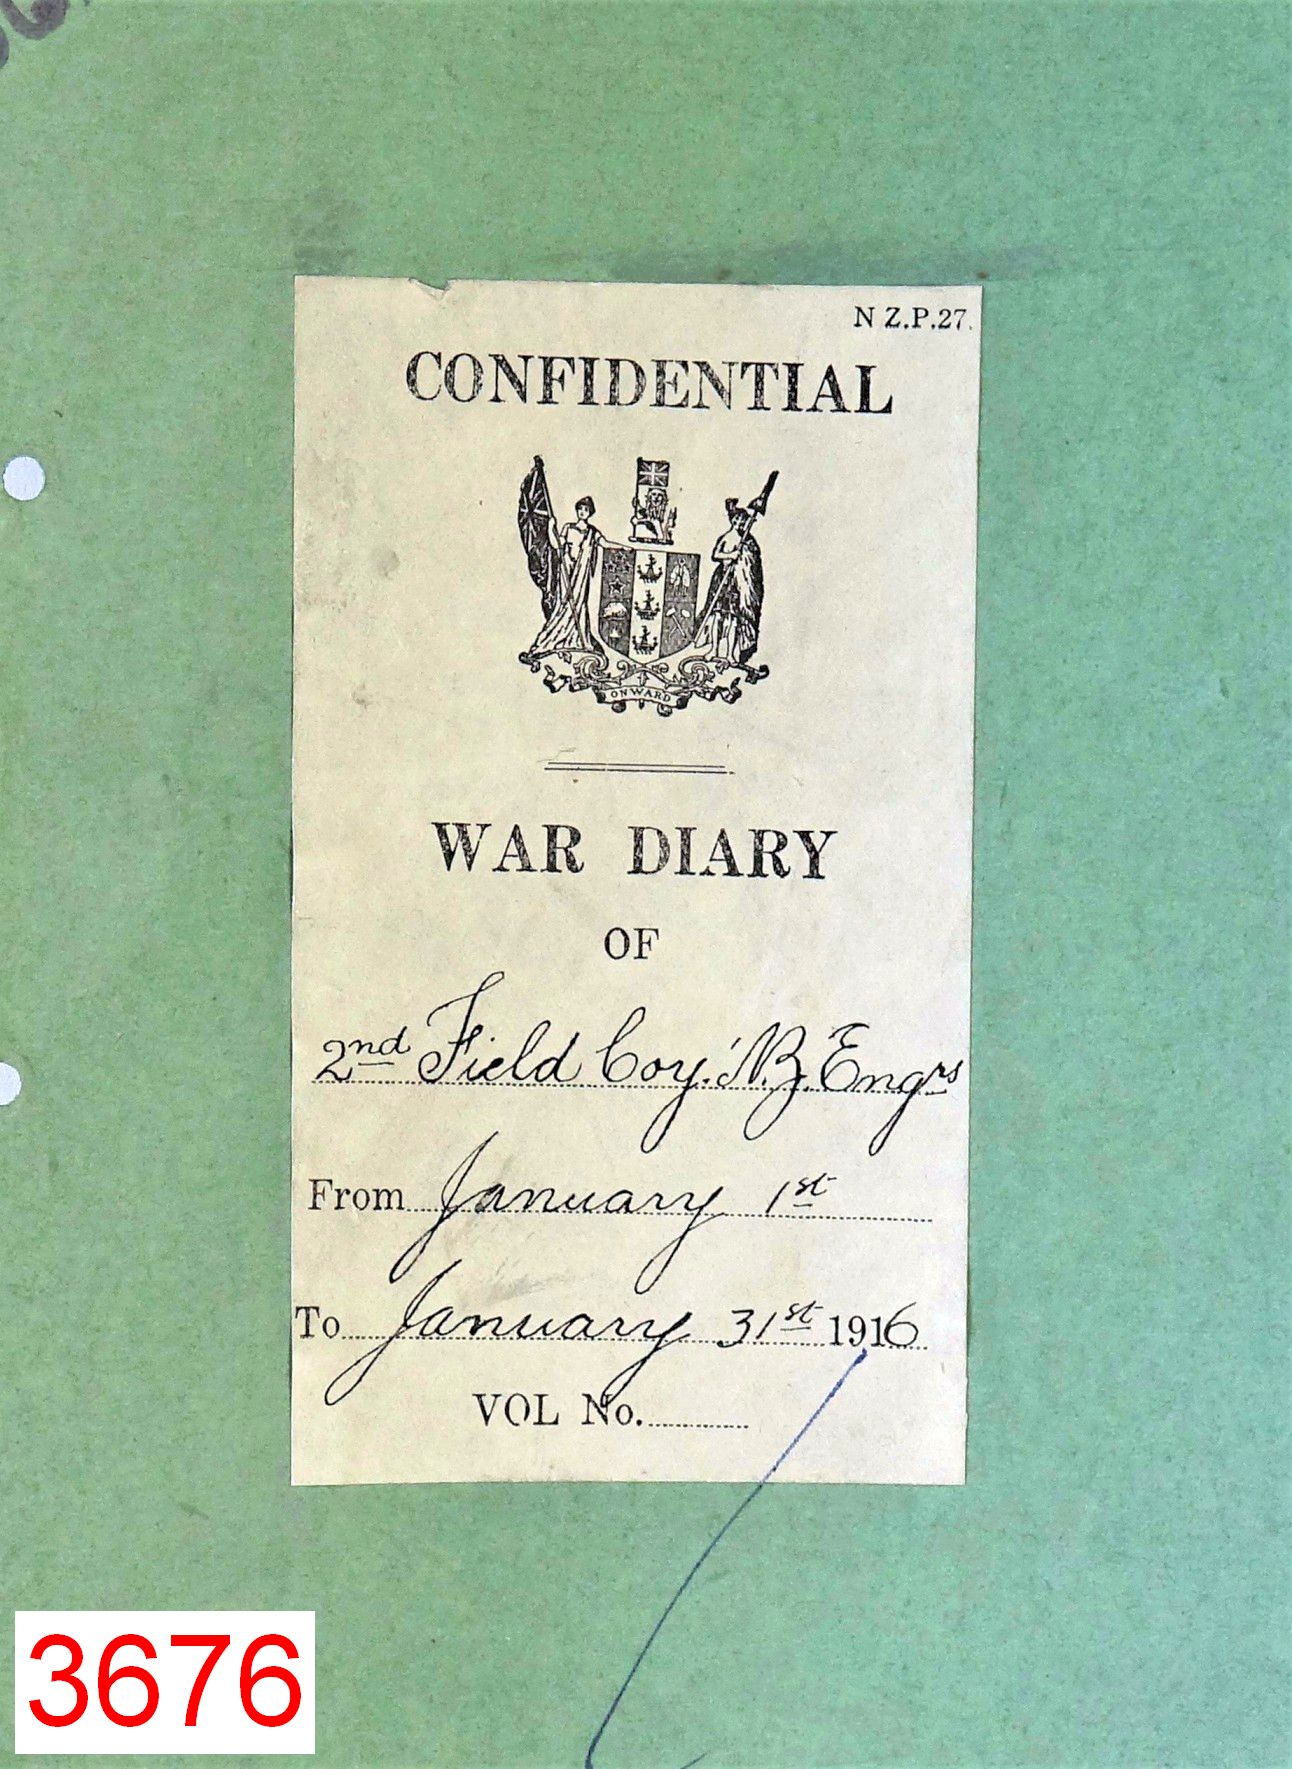 N Z.P.27.
CONFIDENTIAL
ONWARD
WAR DIARY
OF
2nd Field Coy. N.Z. Engrs
From January 1st
To January 31st 1916
VOL No.
3676